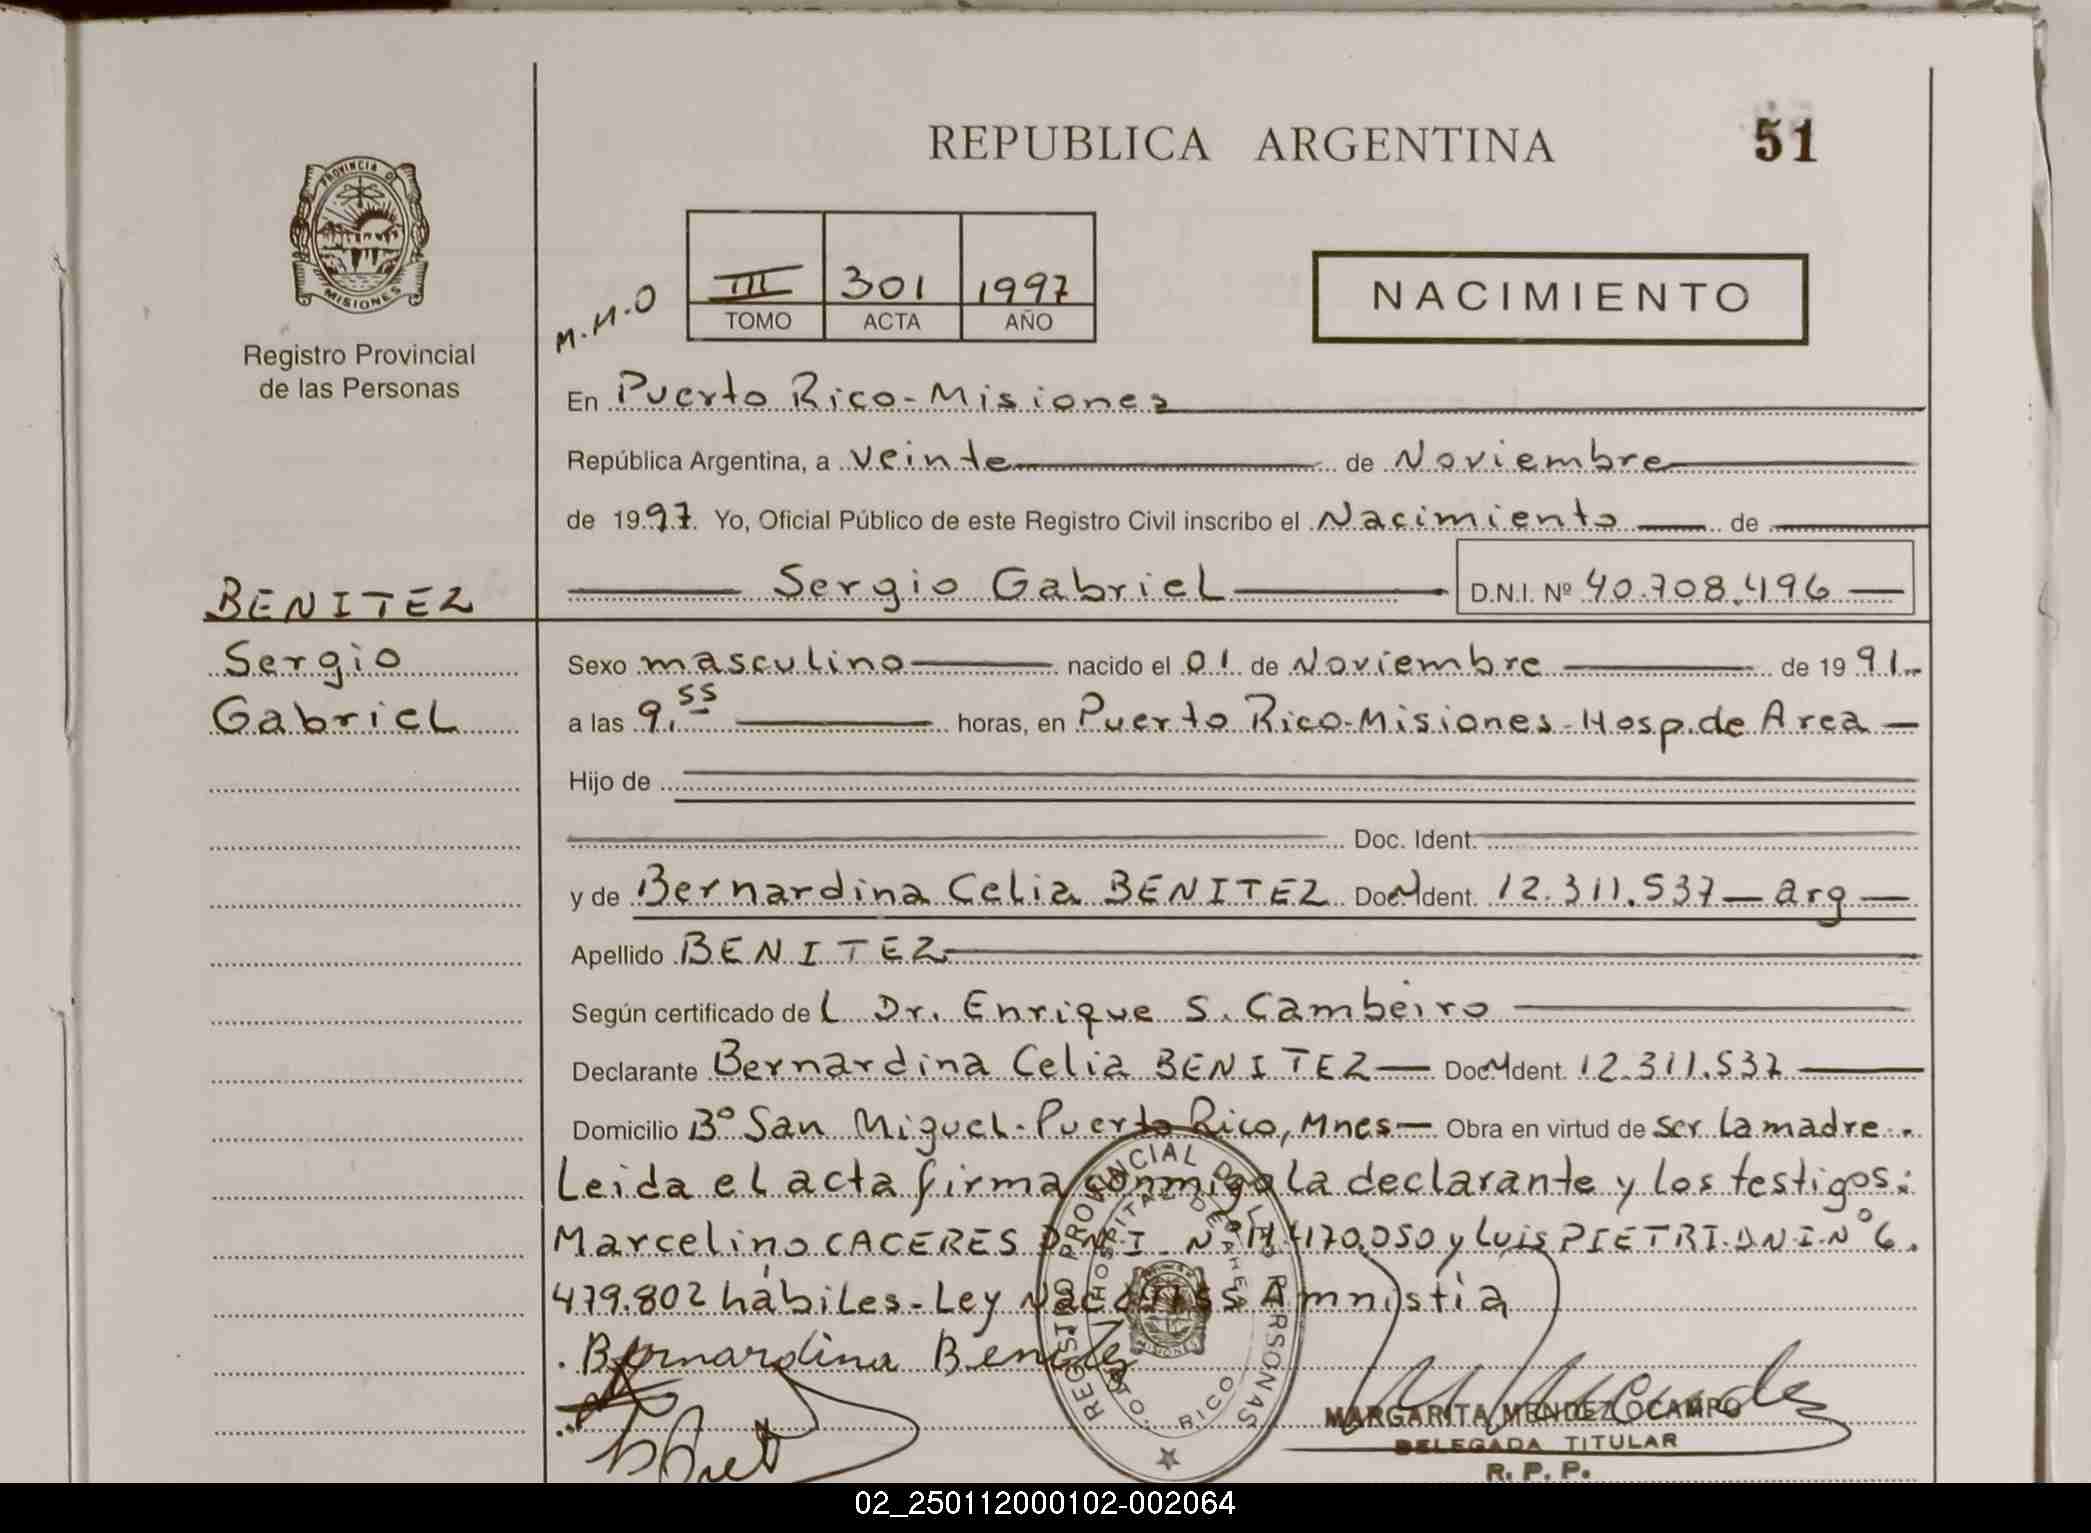 REPUBLICA ARGENTINA
51
PROVINCIA D
MISIONES
Registro Provincial
de las Personas
M.M.O
III 301 1997
TOMO ACTA AÑO
NACIMIENTO
En Puerto Rico-Misiones
República Argentina, a veinte de Noviembre
de 1997. Yo, Oficial Público de este Registro Civil inscribo el Nacimiento de
Sergio Gabriel D.N.I. Nº 40.708.496
BENITEZ
Sergio
Gabriel
Sexo masculino nacido el 01 de Noviembre de 1991.
a las 9.55 horas, en Puerto Rico-Misiones-Hosp.de Area
Hijo de
Doc. Ident.
y de Bernardina Celia BENITEZ Doc. Ident. 12.311.537 - arg
Apellido BENITEZ
Según certificado del Dr. Enrique S. Cambeiro
Declarante Bernardina Celia BENITEZ Doc. Ident. 12.311.537
Domicilio Bº San Miguel-Puerto Rico, Mnes Obra en virtud de ser la madre.
Leida el acta firma conmigo la declarante y los testigos:
Marcelino CACERES D.N.I. Nº M 4170.050 y Luis PIETRI. DNI Nº 6.
479.802 hábiles-Ley Amnistia
Bernardina Benitez
REGISTRO PROVINCIAL DE LAS PERSONAS
HOSPITAL DE AREA
RICO
MARGARITA MENDEZ OCAMPO
DELEGADA TITULAR
R. P. P.
02_250112000102-002064